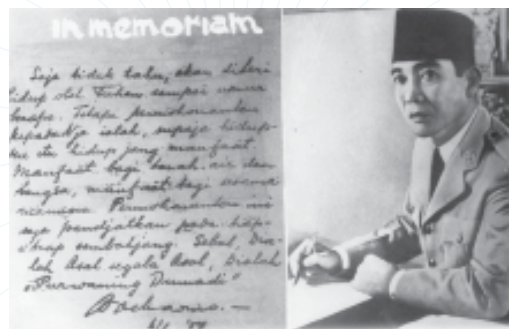 in memoriam
Saja tidak tahu, akan diberi
hidup oleh Tuhan sampai umur
berapa. Tetapi permohonanku
kepadaNja ialah, supaja hidup-
ku itu hidup jang manfaat.
Manfaat bagi tanah-air dan
bangsa, manfaat bagi sesama
manusia. Permohonanku ini
saja pandjatkan pada tiap-
tiap sembahjang. Sebab, Dia-
lah Asal segala Asal, Dialah
"Purwaning Dumadi"
Soekarno. —